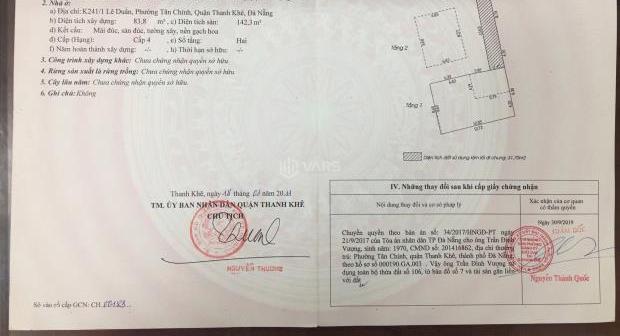 2. Nhà ở:
a) Địa chỉ: K241/1 Lê Duẩn, Phường Tân Chính, Quận Thanh Khê, Đà Nẵng
b) Diện tích xây dựng: 83,8 m² ; c) Diện tích sàn: 142,3 m²
d) Kết cấu: Mái đúc, sàn đúc, tường xây, nền gạch hoa
đ) Cấp (Hạng): Cấp 4 ; e) Số tầng: Hai
f) Năm hoàn thành xây dựng: -/- ; h) Thời hạn sở hữu: -/-
3. Công trình xây dựng khác: Chưa chứng nhận quyền sở hữu.
4. Rừng sản xuất là rừng trồng: Chưa chứng nhận quyền sở hữu.
5. Cây lâu năm: Chưa chứng nhận quyền sở hữu.
6. Ghi chú: Không
Tầng 2
Tầng 1
Diện tích đất sử dụng làm lối đi chung:
VARS
Thanh Khê, ngày tháng năm
TM. ỦY BAN NHÂN DÂN QUẬN THANH KHÊ
CHỦ TỊCH
NGUYỄN THƯƠNG
Số vào sổ cấp GCN: CH
IV. Những thay đổi sau khi cấp giấy chứng nhận
Nội dung thay đổi và cơ sở pháp lý
Xác nhận của cơ quan
có thẩm quyền
Chuyển quyền theo bản án số: 34/2017/HNGĐ-PT ngày
21/9/2017 của Tòa án nhân dân TP Đà Nẵng cho ông Trần Đình
Vượng, sinh năm: 1970, CMND số: 201416862, địa chỉ thường
trú: Phường Tân Chính, quận Thanh Khê, thành phố Đà Nẵng,
theo hồ sơ số 000190.GA.003 . Vậy ông Trần Đình Vượng sử
dụng toàn bộ thửa đất số 106, tờ bản đồ số 7 và tài sản gắn liền
với đất
Ngày 30/9/2019
GIÁM ĐỐC
Nguyễn Thành Quốc